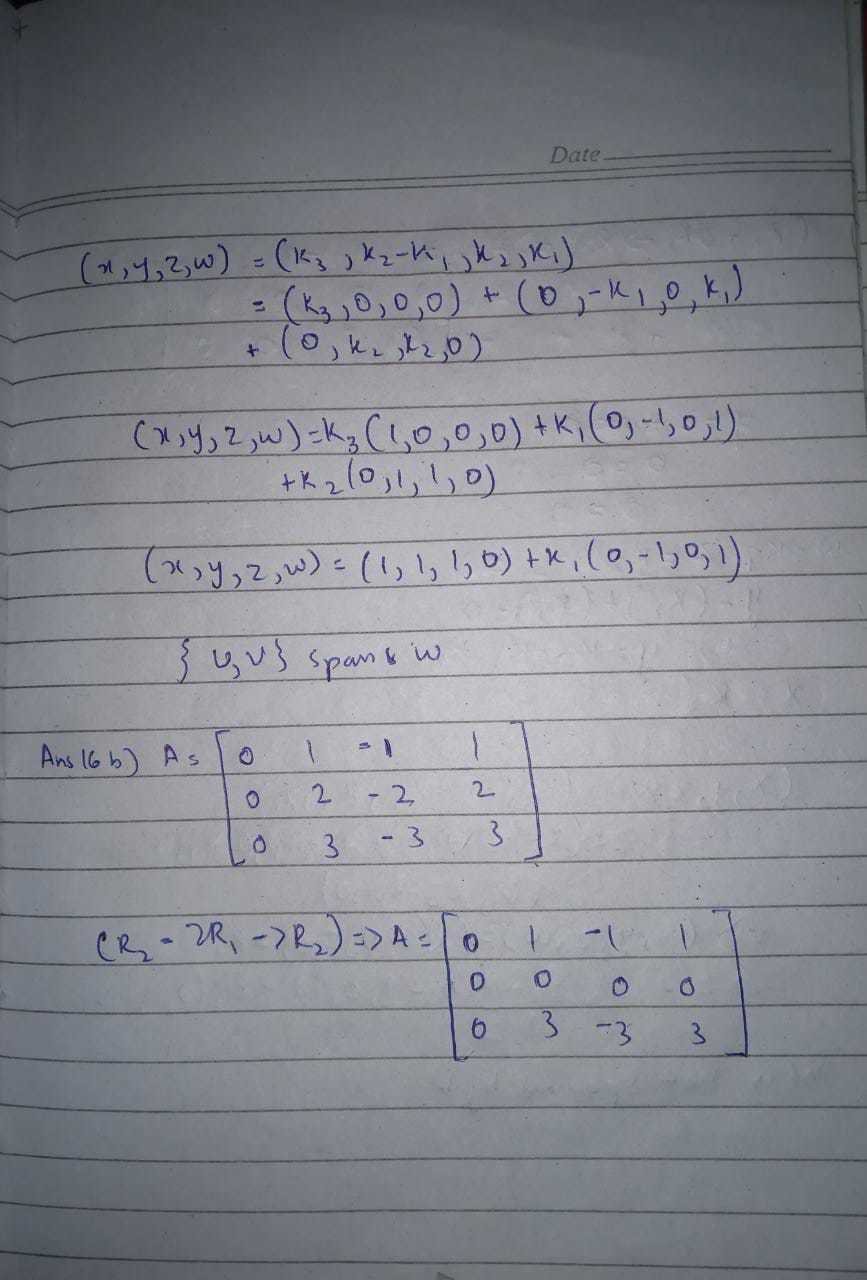 Date
(x,y,z,w) = (k₃, k₂-k₁, k₂, k₁)
= (k₃,0,0,0) + (0,-k₁,0,k₁)
+ (0,k₂,k₂,0)
(x,y,z,w)=k₃(1,0,0,0)+k₁(0,-1,0,1)
+k₂(0,1,1,0)
(x,y,z,w)=(1,1,1,0)+k₁(0,-1,0,1)
{u,v} spans w
Ans 16 b) A = [0 1 -1 1
0 2 -2 2
0 3 -3 3]
(R₂-2R₁->R₂)=>A=[0 1 -1 1
0 0 0 0
0 3 -3 3]